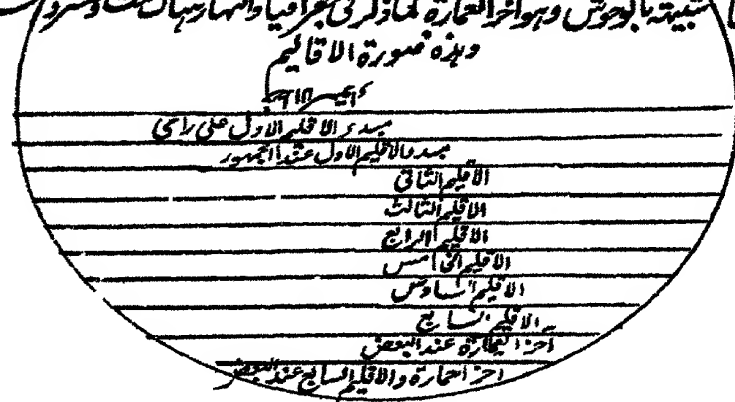 شبيهة بالوحوش وهو آخر العمارة كما ذكر في جغرافيا والنهار هناك
وهذه صورة الاقاليم
مبدء الاقليم الاول على راى
مبدء الاقليم الاول عند الجمهور
الاقليم الثانى
الاقليم الثالث
الاقليم الرابع
الاقليم الخامس
الاقليم السادس
الاقليم السابع
آخر العمارة عند البعض
آخر العمارة والاقليم السابع عند البعض